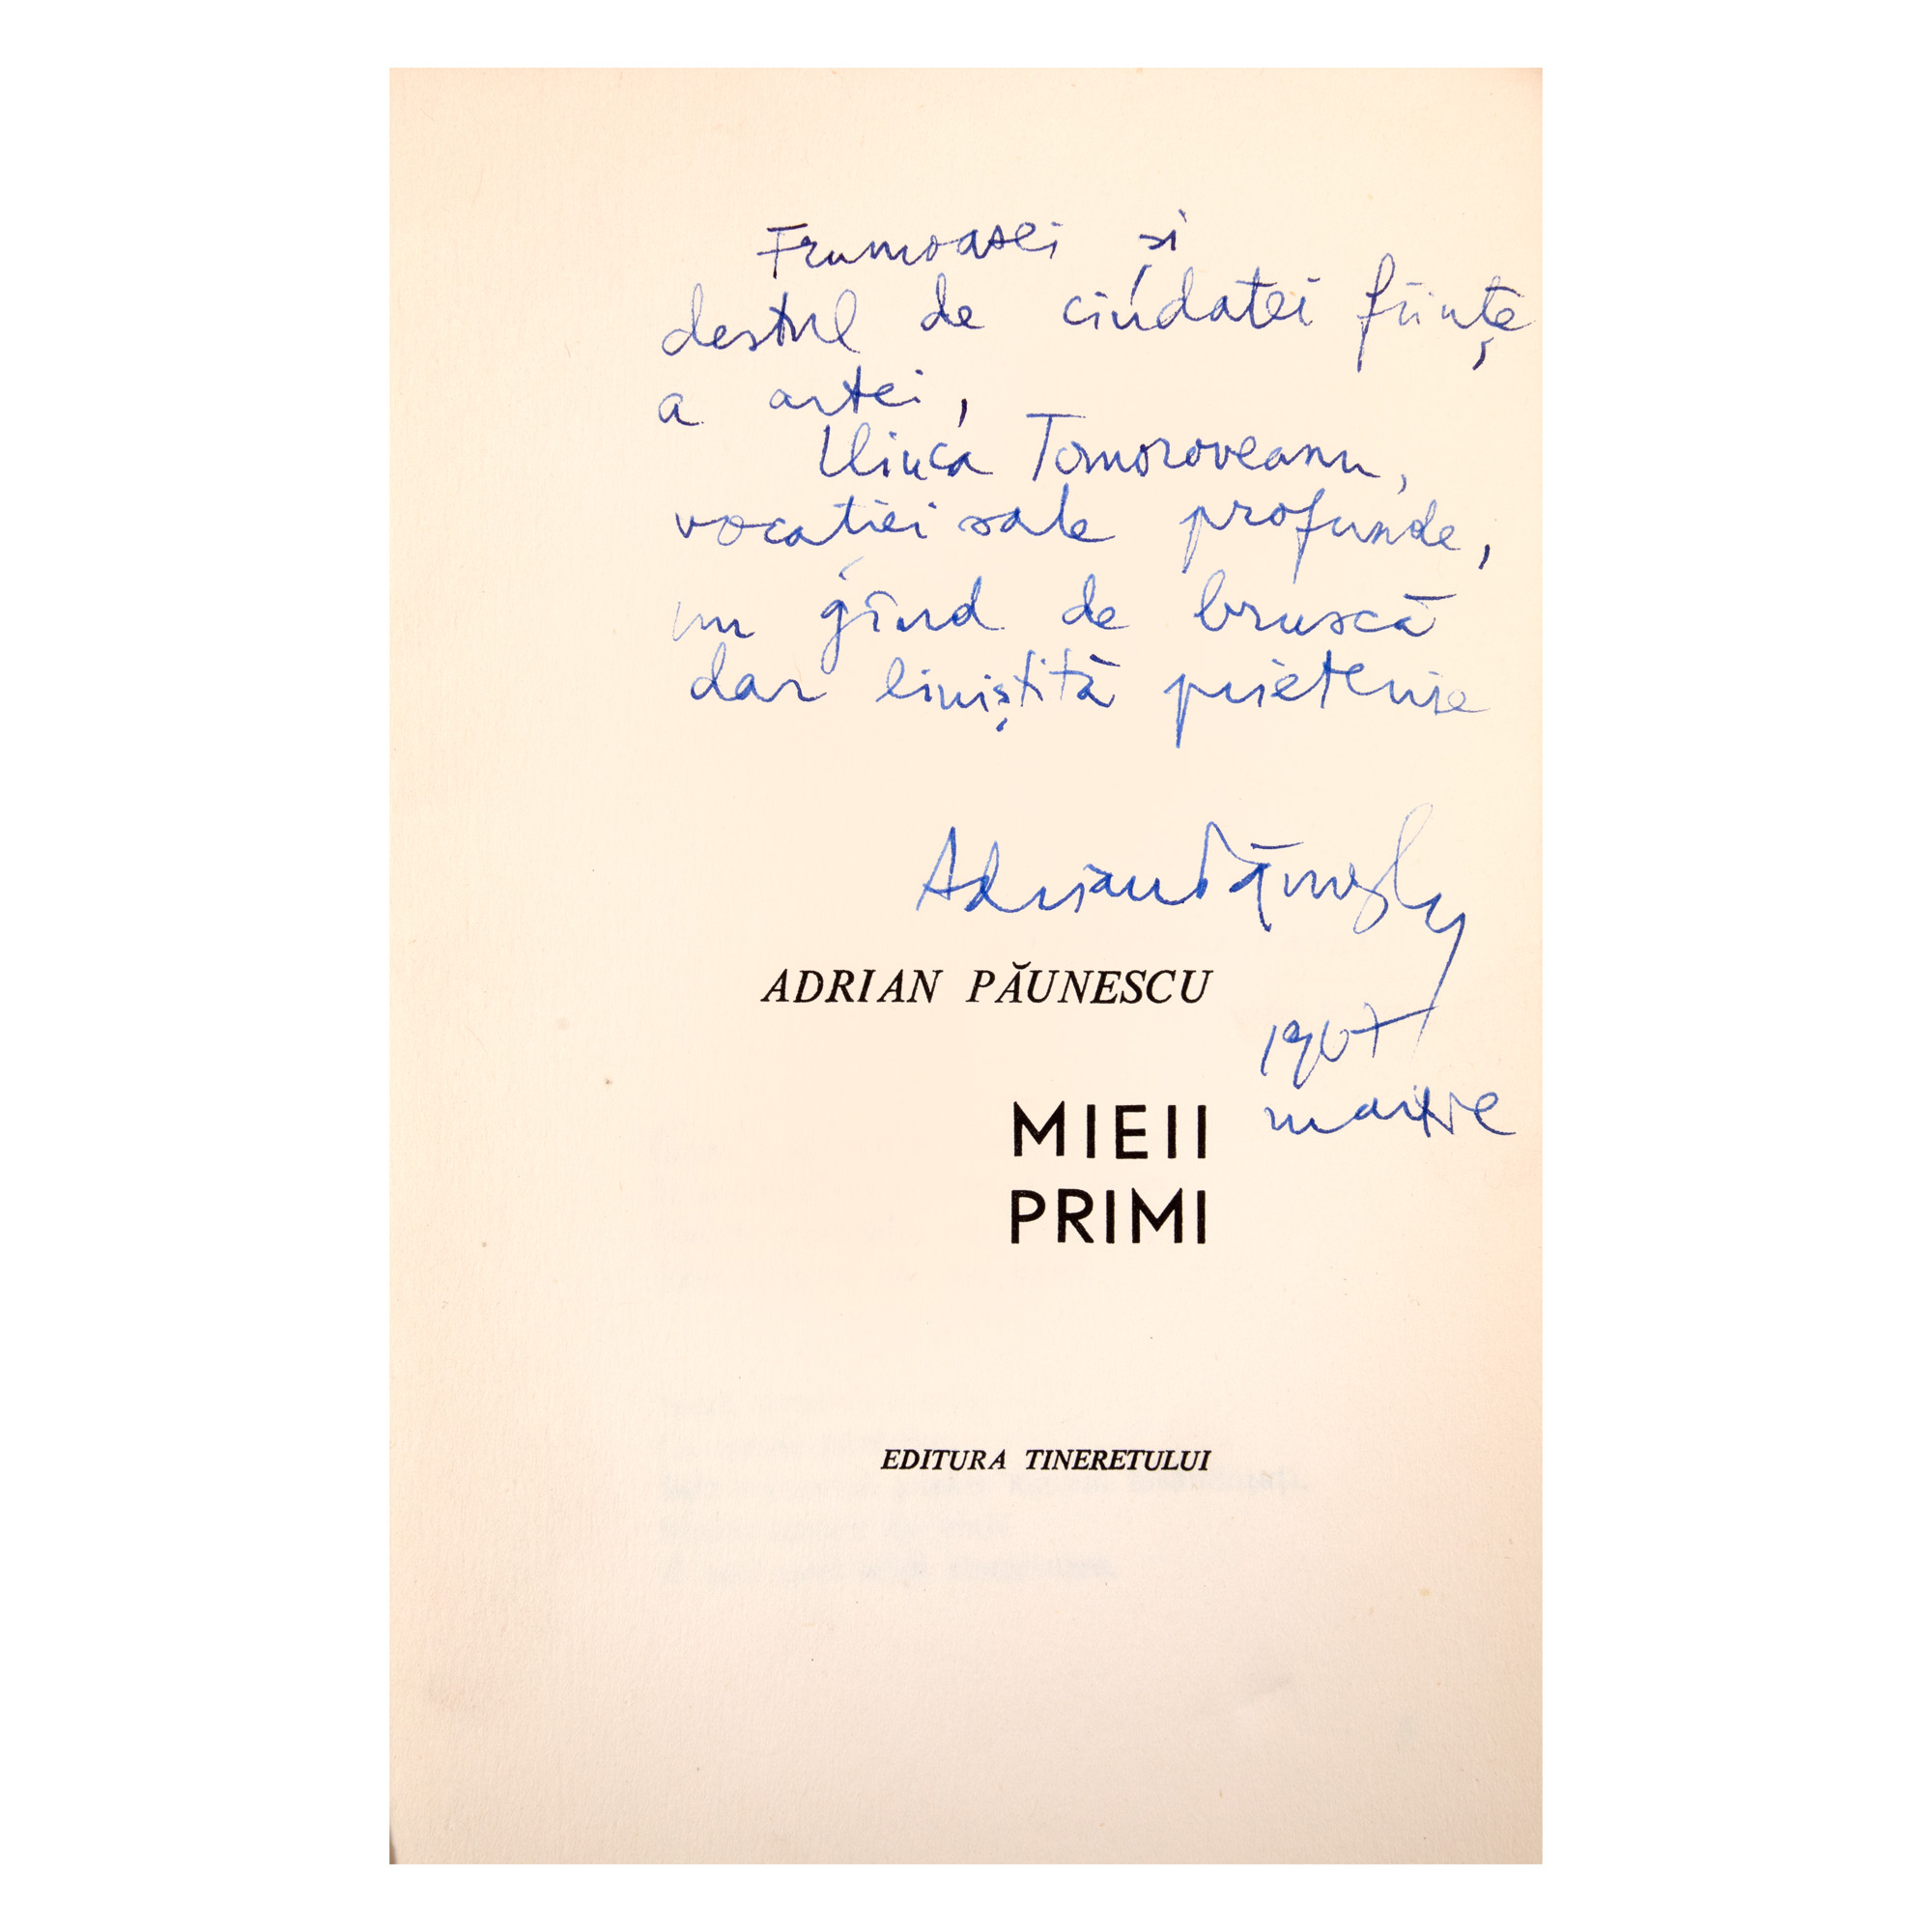 Frumoasei și
destul de ciudatei ființe
a artei,
Ilinca Tomoroveanu,
vocației sale profunde,
un gînd de bruscă
dar liniștită prietenie
Adrian Păunescu
ADRIAN PĂUNESCU
1967
martie
MIEII
PRIMI
EDITURA TINERETULUI